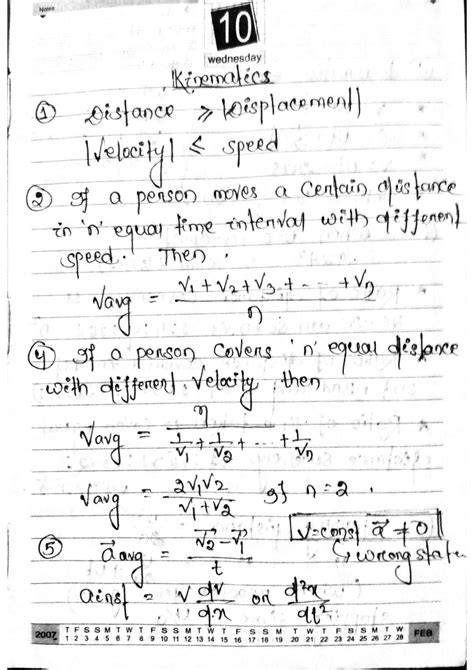 Notes
10
wednesday
Kinematics
① Distance ⩾ |Displacement|
|Velocity| ≤ speed
② If a person moves a certain distance
in 'n' equal time interval with different
speed. Then,
Vavg = (V₁ + V₂ + V₃ + - - - + Vn) / n
④ If a person covers 'n' equal distance
with different velocity, then
Vavg = n / (1/V₁ + 1/V₂ + ... + 1/Vn)
Vavg = 2V₁V₂ / (V₁ + V₂) If n = 2.
V=const a⃗ ≠ 0
⑤ a⃗avg = (V⃗₂ - V⃗₁) / t
↳ wrong state
ainst = V dv/dx or d²x/dt²
2007 T F S S M T W T F S S M T W T F S S M T W T F S S M T W FEB
1 2 3 4 5 6 7 8 9 10 11 12 13 14 15 16 17 18 19 20 21 22 23 24 25 26 27 28